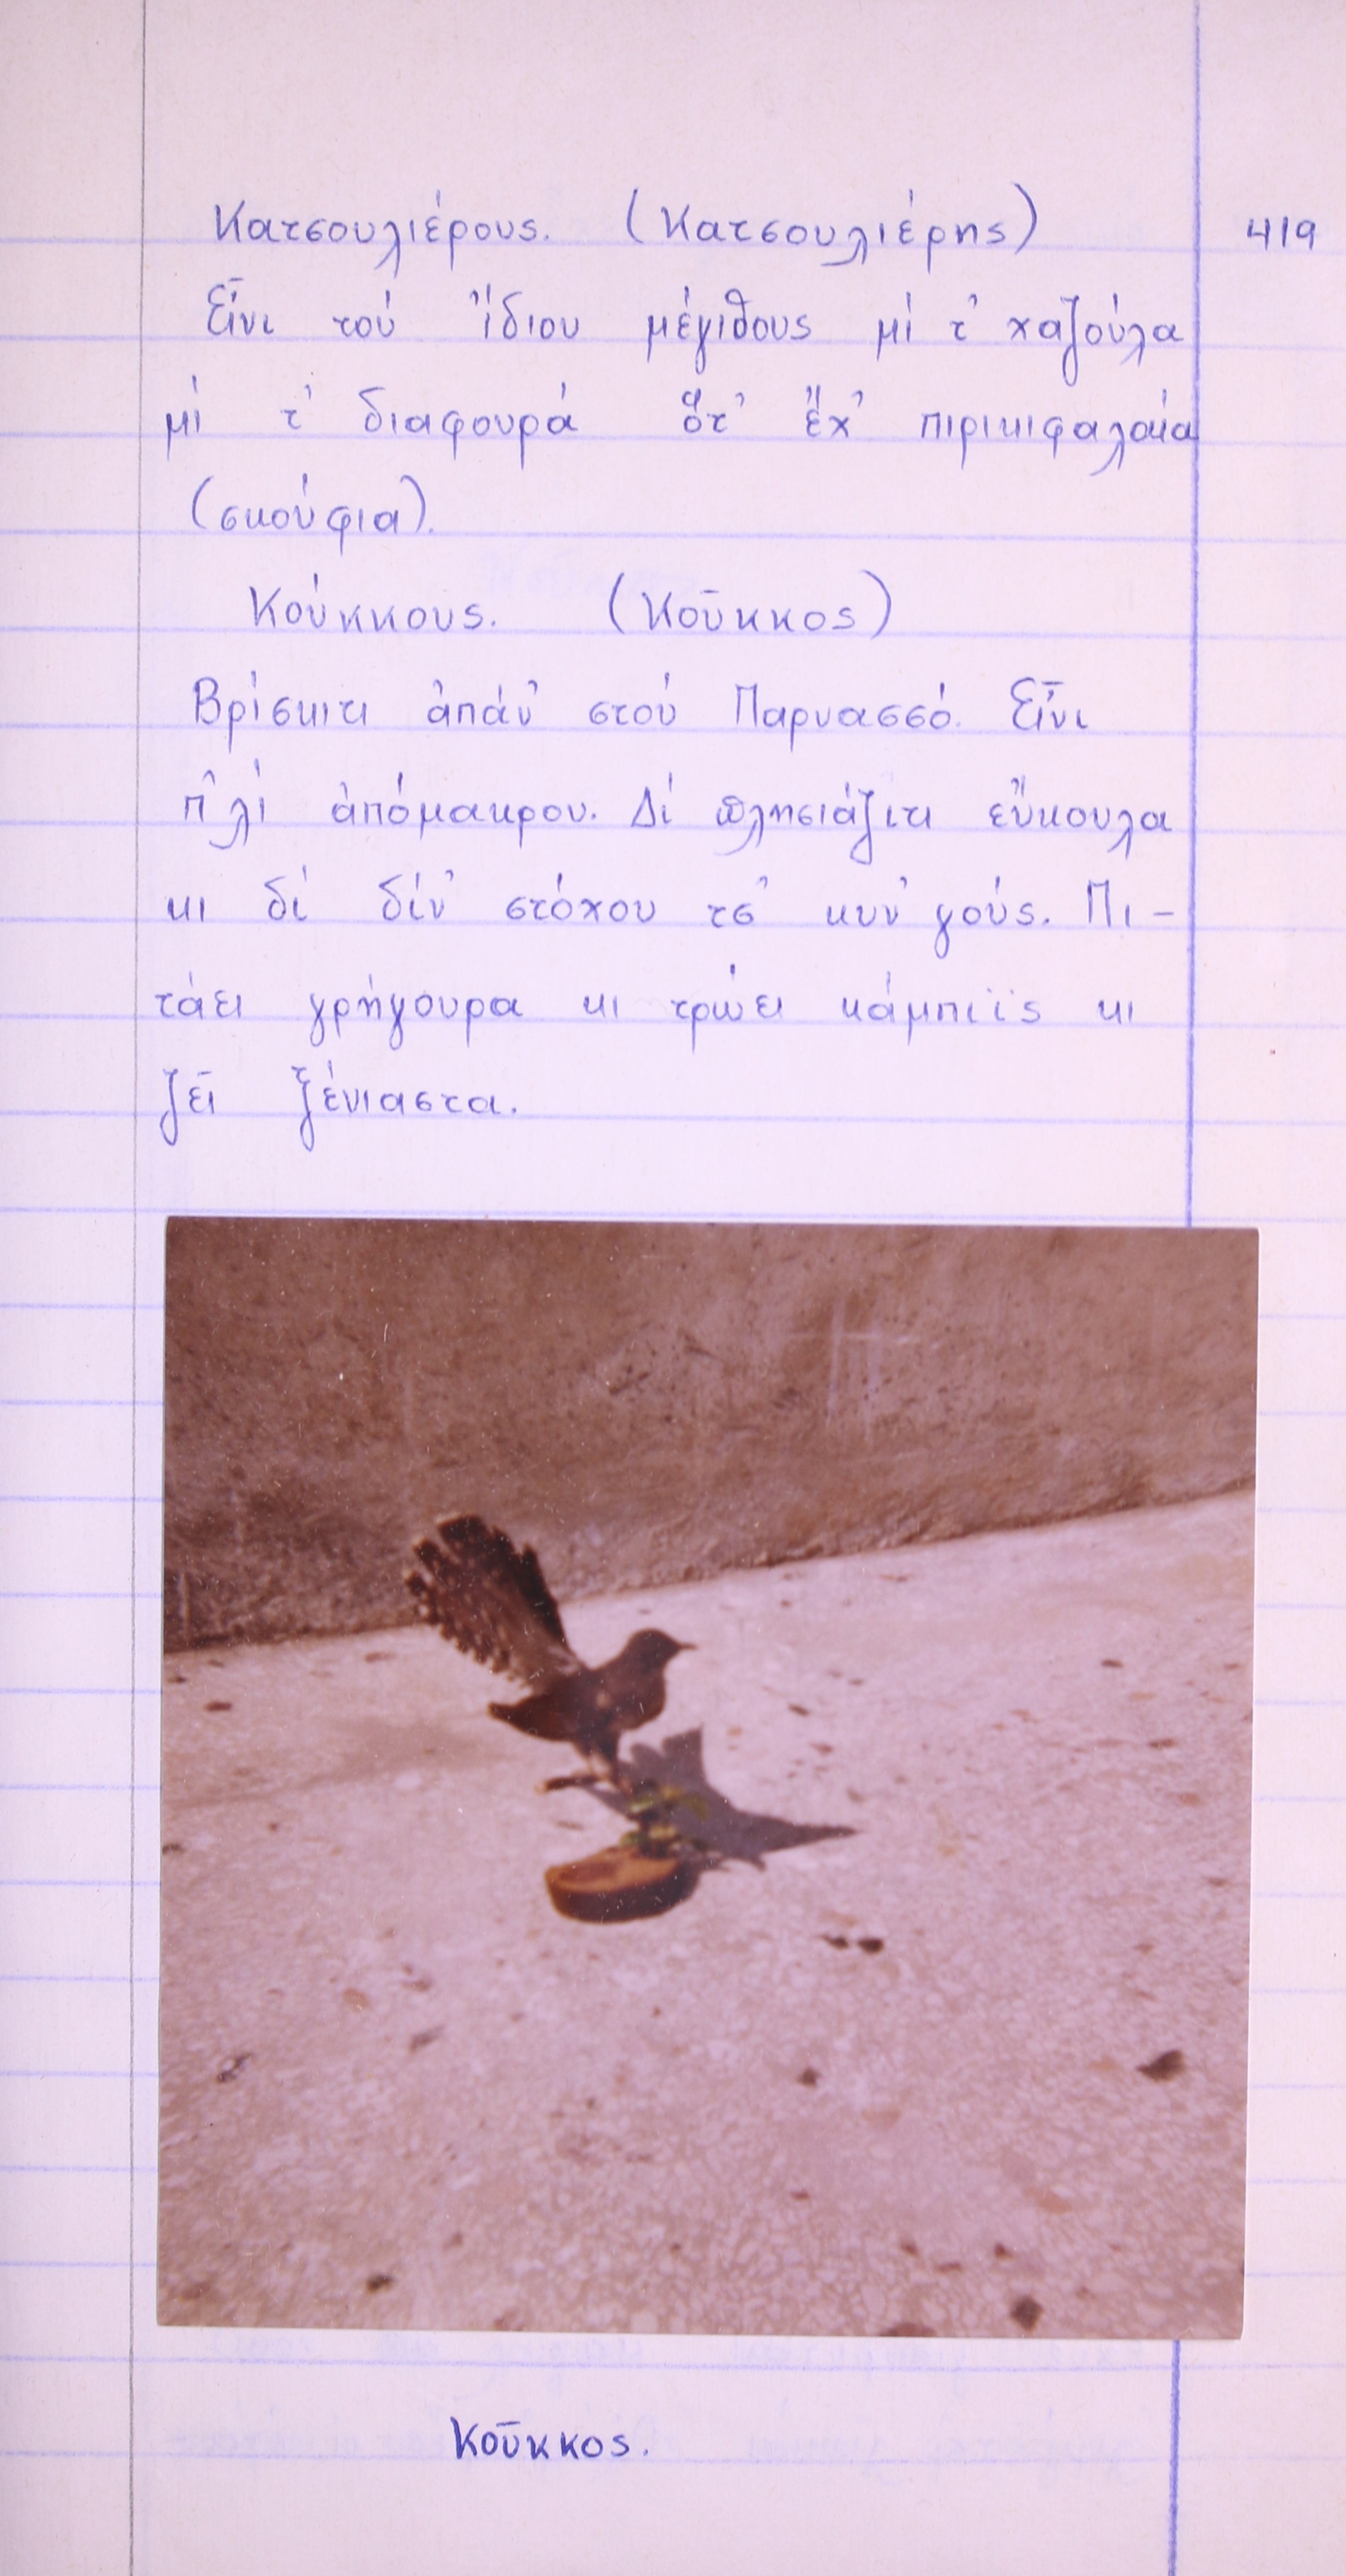 Κατσουλιέρους. (Κατσουλιέρης) 419
Εἶνι τού ἴδιου μέγιθους μί τ' χαζούλα
μί τ' διαφουρά ὅτ' ἔχ' πιρικιφαλαία
(σκούφια).
Κούκκους. (Κοῦκκος)
Βρίσκιτι ἀπάν' στού Παρνασσό. Εἶνι
π'λί ἀπόμακρου. Δί πλησιάζιτι εὔκουλα
κι δί δίν' στόχου τσ' κυν'γούς. Πι-
τάει γρήγουρα κι τρώει κάμπιϊς κι
ζεῖ ξένιαστα.
Κοῦκκος.